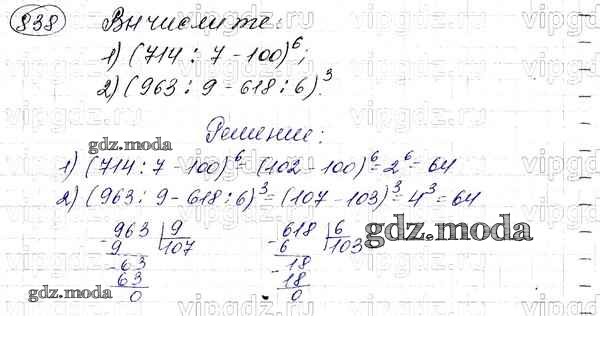 838 Вычислите:
1) (714 : 7 - 100)⁶;
2) (963 : 9 - 618 : 6)³.
Решение:
gdz.moda
1) (714 : 7 - 100)⁶ = (102 - 100)⁶ = 2⁶ = 64
2) (963 : 9 - 618 : 6)³ = (107 - 103)³ = 4³ = 64
963 | 9 618 | 6
- 9 107 - 6 103
gdz.moda
- 63 - 18
63 18
0 0
gdz.moda
gdz.moda
vipgdz
vipgdz
vipgdz
vipgdz